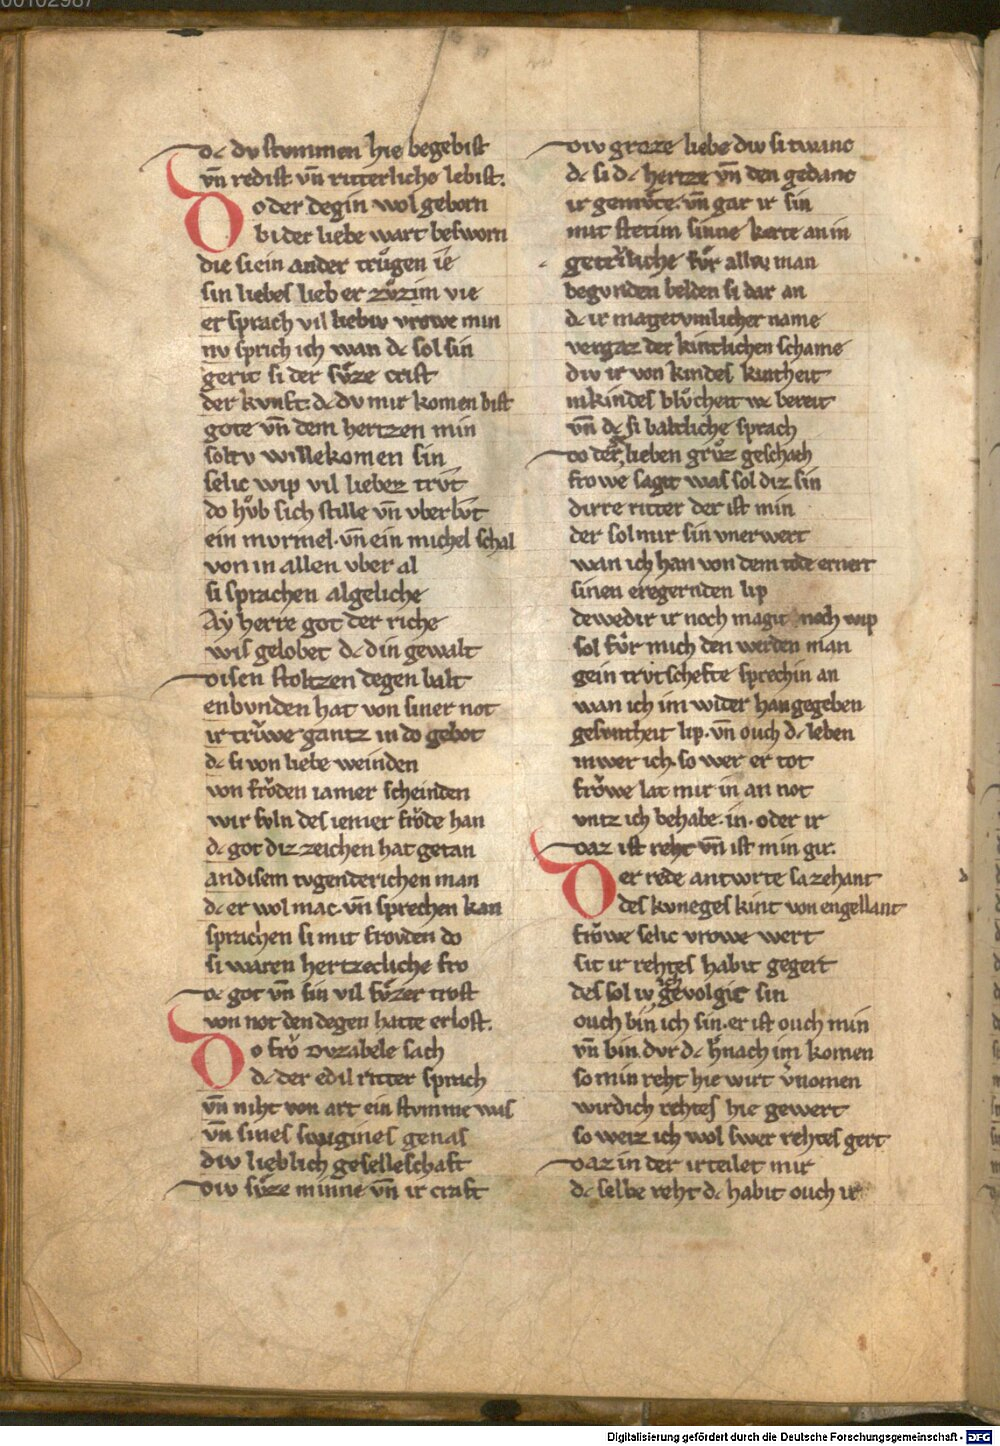 00102987
dc du stummen hie begebist
vn̄ redist vn̄ ritterlichē lebist.
Do der degin wol geborn
bi der liebe wart besworn
die si ein ander trůgen ie
sin liebes lieb er zůzim vie
er sprach vil liebiv vrowe min
nv sprich ich wan dc sol sin
geric si der sv̊ze crist
der kvnft. dc dv mir komen bist
gote vn̄ dem hertzen min
soltv willekomen sin
selic wip vil liebez trvt
do hůb sich stille vn̄ vberlvt
ein mvrmel. vn̄ ein michel schal
von in allen vber al
si sprachen algeliche
Ay herre got der riche
wis gelobet dc din gewalt
disen stoltzen degen balt
enbvnden hat von siner not
ir trůwe gantz in do gebot
dc si von liebe weinden
von frŏden iamer scheinden
wir svln des iemer frŏde han
dc got diz zeichen hat getan
an disem tvgenderichen man
dc er wol mac. vn̄ sprechen kan
sprachen si mit frovden do
si waren hertzecliche fro
dc got vn̄ sin vil sv̊zer trost
von not den degen hatte erlost.
Do frŏ dvzabele sach
dc der edil ritter sprach
vn̄ niht von art ein stvmme was
vn̄ sines swigines genas
div lieblich geselleschaft
div sv̊ze minne vn̄ ir craft
div groze liebe div si twanc
dc si dc hertze vn̄ den gedanc
ir gemv̊te. vn̄ gar ir sin
mit stetim sinne kerte an in
getrîliche fv̊r allen man
begvnden belden si dar an
dc ir magetvmlicher name
vergaz der kintlichen schame
div ir von kindes kintheit
in kindes blv̊cheit wc bereit
vn̄ dc si baltliche sprach
do der lieben grv̊z geschach
frowe sagit was sol diz sin
dirre ritter der ist min
der sol mir sin vnerwert
wan ich han von dem tode ernert
sinen eregernden lip
dewedir ir noch magit noch wip
sol fv̊r mich den werden man
gein trvtschefte sprechin an
wan ich im wider han gegeben
gesvntheit lip. vn̄ ouch dc leben
inwer ich. so wer er tot
frŏwe lat mir in an not
vntz ich behabe. in. oder ir
daz ist reht vn̄ ist min gir.
Der rede antwrte sa zehant
des kvneges kint von engellant
frŏwe selic vrowe wert
sit ir rehtes habit gegert
des sol iv gevolgit sin
ouch bin ich sin. er ist ouch min
vn̄ bin dvr dc h̄nach im komen
so min reht hie wirt v̄nomen
wirdich rehtes hie gewert
so weiz ich wol swer rehtes gert
daz in der irteilet mir
dc selbe reht dc habit ouch ir
Digitalisierung gefördert durch die Deutsche Forschungsgemeinschaft - DFG